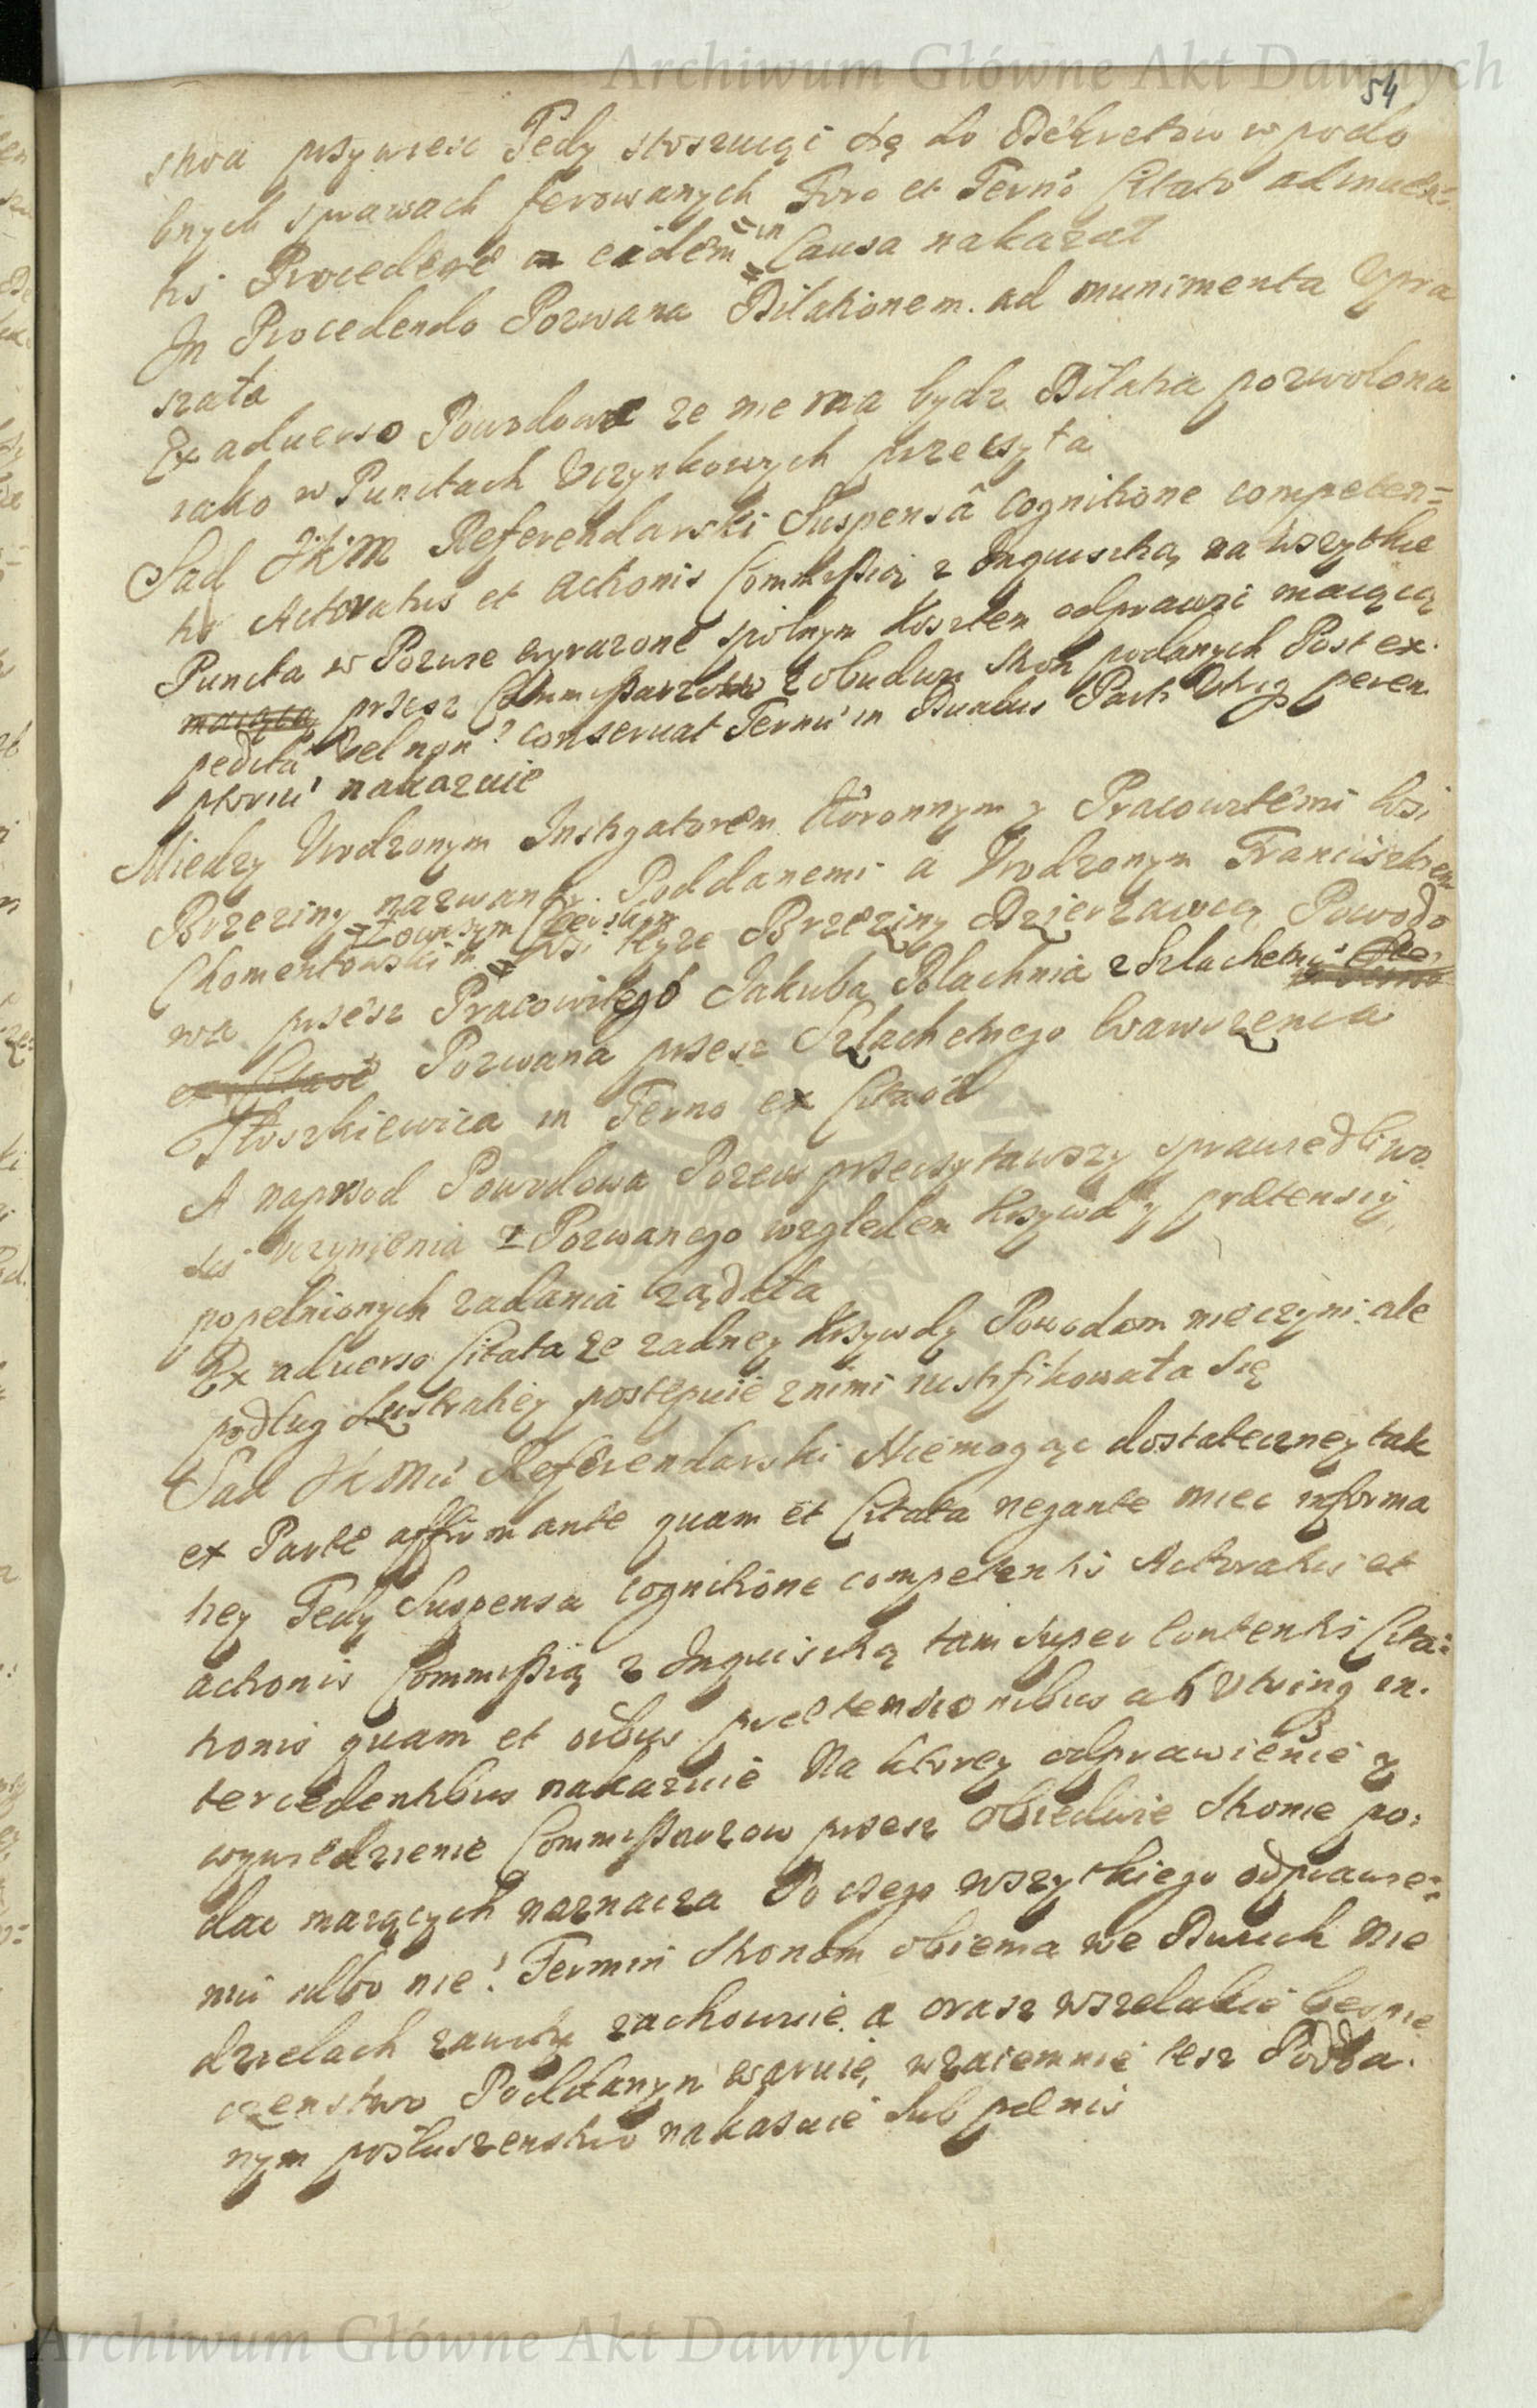 Archiwum Główne Akt Dawnych
54
przywiesc Tedy stosuiąci się do Dekretow w podo
bnych sprawach ferowanych Foro et Termo Citato
tis Procedere eidem in Causa nakazał
In Procedendo Pozwana Dilationem ad munimenta Vpra
szała
Ex aduerso Powodowa ze nie ma bydz Dilatia pozwolona
iako w Punctach Vczynkowych przeczyła
Sąd JKM Referendarski Suspensâ Cognitione competen=
tis Actoratus et Actionis Commissią z Inquisitią na wszytkie
Puncta w Pozwie wyrazone spolnym Kosztem odprawic maiącą
maiącą przesz Commissarzow z obudwu Stron podanych Post ex.
pedita vel non? conseruat Termin in Duabus Part Vtrq peren
ptoriu nakazuie
Miedzy Vrodzonym Instygatorem Koronnym y Pracowitemi Wsi
Brzeziny nazwaney Poddanemi a Vrodzonym Franciszkiem
Chomentowskim Wsi teyze Brzeziny Dzierzawcą Powodo
wa przesz Pracowitego Jakuba Blachnia z Szlachetnego
Pozwana przesz Szlachetnego Wawrzenca
Tłoszkiewica in Termo ex Citaõe
A naprzod Powodowa Pozew przeczytawszy sprawiedliwo
sci vczynienia z Pozwanego względem Krzywd y prætensiy
popełnionych zadania ządała
Ex aduerso Citata ze zadney Krzywdy Powodom nie czyni ale
podług Lustratiey postępuie z nimi iustifikowała się
Sąd JKMci Referendarski Niemogąc dostateczney tak
ex Parte affirmante quam et Citata negante miec informa
tiey Tedy Suspensa cognitione competentis Actoratus et
actionis Commissią z Inquisitią tam super Contentis Cita=
tionis quam et oibus prætensionibus ab Vtrinq in.
tercedentibus nakazuie Na ktorey odprawienie y
wywiedzienie Commissarzow przesz obiedwie Stronie po:
dac maiących naznacza Po czego wszytkiego odprawie=
niu albo nie! Termin Stronom obiema we Dwuch Nie
dzielach zawity zachowuie a orasz wszelakie bespie
czenstwo Poddanym waruie, wzaiemnie tesz Podda.
nym posłuszenstwo nakazuie sub pœnis
Archiwum Główne Akt Dawnych